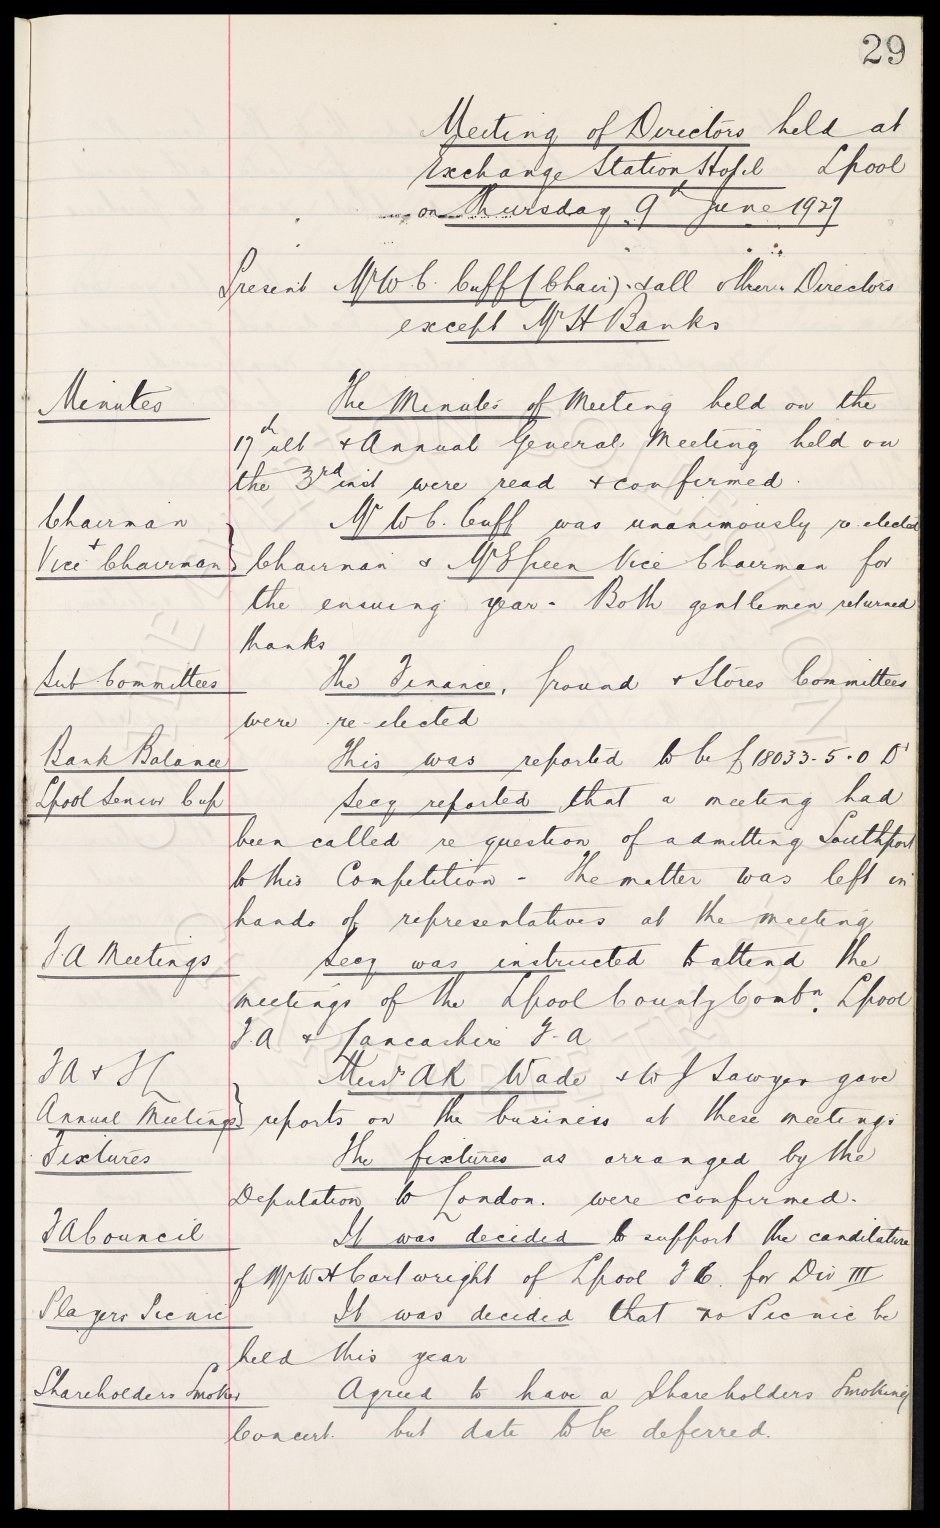 29
Meeting of Directors held at
Exchange Station Hotel Lpool
on Thursday 9th June 1927
Present Mr W. C. Cuff (Chair) & all other Directors
except Mr H Banks
Minutes The Minutes of Meeting held on the
17th ult & Annual General Meeting held on
the 3rd inst were read & confirmed.
Chairman Mr W C. Cuff was unanimously re-elected
+
Vice Chairman } Chairman & Mr E Green Vice Chairman for
the ensuing year - Both gentlemen returned
thanks
Sub Committees The Finance, Ground & Stores Committees
were re-elected
Bank Balance This was reported to be £18033-5-0 Dr
Lpool Senior Cup Secy reported that a meeting had
been called re question of admitting Southport
to this Competition - The matter was left in
hands of representatives at the meeting
F A Meetings Secy was instructed to attend the
meetings of the Lpool County Combn. Lpool
F.A & Lancashire F.A
F A & F L Messrs A R Wade & W J Sawyer gave
Annual Meetings } reports on the business at these meetings
Fixtures The fixtures as arranged by the
Deputation to London. were confirmed.
F A Council It was decided to support the candidature
of Mr W H Cartwright of Lpool F C. for Div III
Players Picnic It was decided that no Picnic be
held this year
Shareholders Smoker Agreed to have a Shareholders Smoking
Concert. but date to be deferred.
THE EVERTON COLLECTION